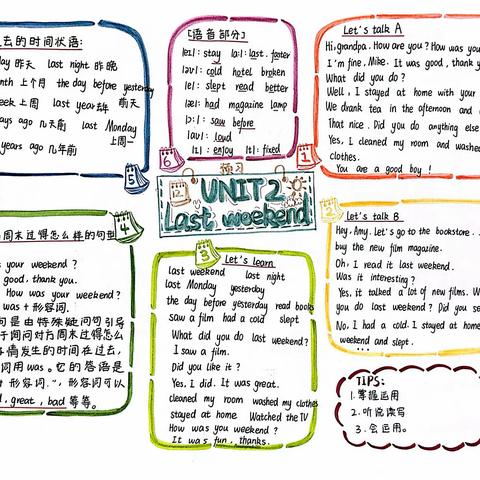 去的时间状语:
day 昨天 last night 昨晚
nth 上个月 the day before yesterday 前天
eek 上周 last year 去年
ays ago 几天前 last Monday 上周一
years ago 几年前
5
[语音部分]
stay last. faster
cold hotel broken
slept read better
had magazine lamp
saw before
loud
enjoy fixed
6
Let's talk A
Hi, grandpa. How are you? How was you
I'm fine, Mike. It was good, thank y
What did you do?
Well, I stayed at home with your
We drank tea in the afternoon and
That nice. Did you do anything else
Yes, I cleaned my room and washed
clothes.
You are a good boy!
1
预习
UNIT 2
Last weekend
周末过得怎么样的句型
s your weekend?
good, thank you.
How was your weekend?
was + 形容词.
句是由特殊疑问句引导
于问对方周末过得怎么
情发生的时间在过去,
词用was。它的答语是
+ 形容词.",形容词可以
great, bad 等等。
4
3
Let's learn
last weekend last night
last Monday yesterday
the day before yesterday read books
saw a film had a cold slept
What did you do last weekend?
I saw a film.
Did you like it?
Yes, I did. It was great.
cleaned my room washed my clothes
stayed at home Watched the TV
How was you weekend?
It was fun, thanks.
2
Let's talk B
Hey, Amy. Let's go to the bookstore.
buy the new film magazine.
Oh, I read it last weekend.
Was it interesting?
Yes, it talked a lot of new films. W
you do last weekend? Did you se
No, I had a cold. I stayed at home
weekend and slept.
TIPS:
1. 掌握运用
2. 听说读写
3. 会运用。